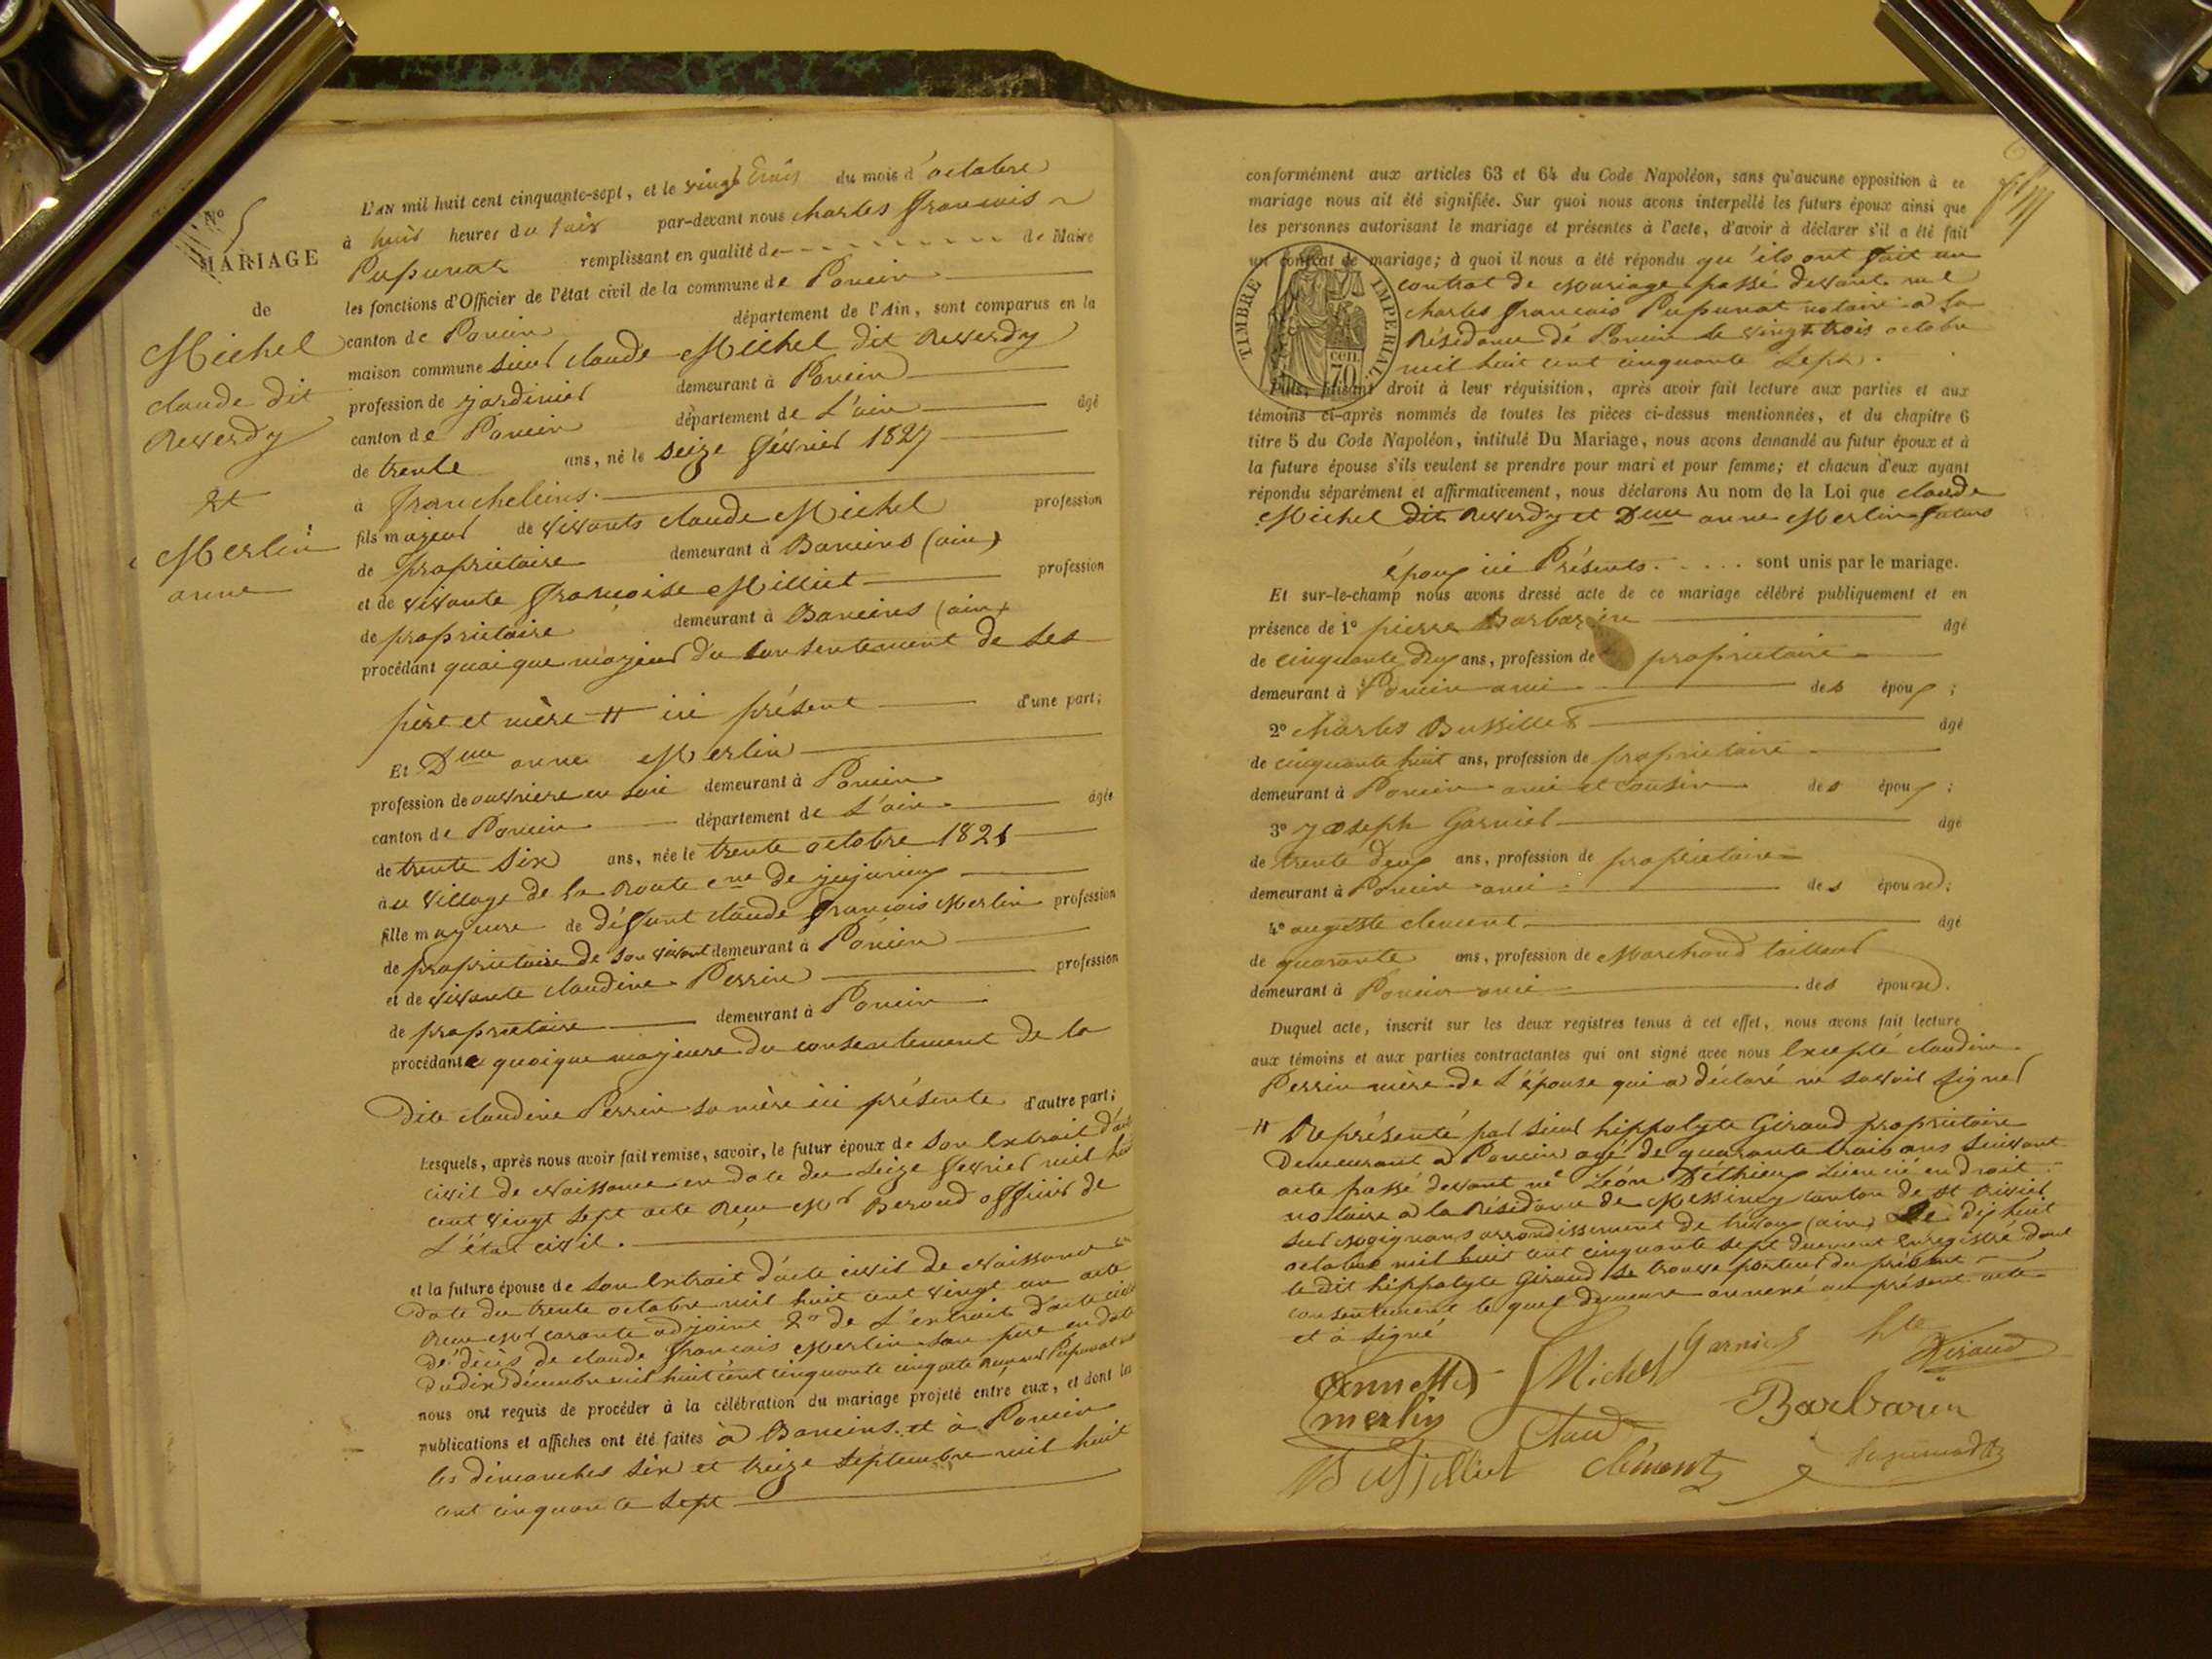 N° 5
MARIAGE
de
Michel
claude dit
Reverdy
et
Merlin
anne
L'AN mil huit cent cinquante-sept, et le vingt trois du mois d'octobre
à huit heures du soir par-devant nous charles françois
Papunat remplissant en qualité de de Maire
les fonctions d'Officier de l'état civil de la commune de Poncin
canton de Poncin département de l'Ain, sont comparus en la
maison commune sieur claude Michel dit Reverdy
profession de jardinier demeurant à Poncin
canton de Poncin département de L'ain âgé
de trente ans, né le seize février 1827
à francheleins.
fils majeur de vivants claude Michel profession
de propriétaire demeurant à Baneins (ain)
et de vivante françoise Milliet profession
de propriétaire demeurant à Baneins (ain)
procédant quoique majeur du consentement de ses
père et mère H ici présent d'une part;
Et Dlle anne Merlin
profession de ouvrière en soie demeurant à Poncin
canton de Poncin département de L'ain âgée
de trente six ans, née le trente octobre 1821
au village de la Route cne de jujurieux
fille majeure de défunt claude françois Merlin profession
de propriétaire de son vivant demeurant à Poncin
et de vivante claudine Perrin profession
de propriétaire demeurant à Poncin
procédante quoique majeure du consentement de la
dite claudine Perrin sa mère ici présente d'autre part;
Lesquels, après nous avoir fait remise, savoir, le futur époux de son Extrait d'acte
civil de Naissance en date du seize fevrier mil huit
cent vingt sept acte Reçu Mr Beroud officier de
L'état civil.
et la future épouse de son Extrait d'acte civil de Naissance en
Date du trente octobre mil huit cent vingt un acte
Reçu Mr carante adjoint 2° de L'extrait d'acte civil
de décès de claude françois Merlin son père en date
du dix décembre mil huit cent cinquante cinq acte Reçu Papunat
nous ont requis de procéder à la célébration du mariage projeté entre eux, et dont les
publications et affiches ont été faites à Baneins et à Poncin
les dimanches six et treize septembre mil huit
cent cinquante sept
conformément aux articles 63 et 64 du Code Napoléon, sans qu'aucune opposition à ce
mariage nous ait été signifiée. Sur quoi nous avons interpellé les futurs époux ainsi que
les personnes autorisant le mariage et présentes à l'acte, d'avoir à déclarer s'il a été fait
un contrat de mariage; à quoi il nous a été répondu qu'ils ont fait un
contrat de Mariage passé devant me
charles françois Papunat notaire à la
Résidence de Poncin le vingt trois octobre
mil huit cent cinquante sept.
TIMBRE IMPERIAL
70 cen.
Puis, faisant droit à leur réquisition, après avoir fait lecture aux parties et aux
témoins ci-après nommés de toutes les pièces ci-dessus mentionnées, et du chapitre 6
titre 5 du Code Napoléon, intitulé Du Mariage, nous avons demandé au futur époux et à
la future épouse s'ils veulent se prendre pour mari et pour femme; et chacun d'eux ayant
répondu séparément et affirmativement, nous déclarons Au nom de la Loi que claude
Michel dit Reverdy et Dlle anne Merlin futurs
époux ici Présents. . . . . sont unis par le mariage.
Et sur-le-champ nous avons dressé acte de ce mariage célébré publiquement et en
présence de 1° pierre Barbarin âgé
de cinquante deux ans, profession de propriétaire
demeurant à Poncin ami des époux;
2° charles Bussillet âgé
de cinquante huit ans, profession de propriétaire
demeurant à Poncin ami et cousin des époux;
3° joseph Garnier âgé
de trente deux ans, profession de propriétaire
demeurant à Poncin ami des époux;
4° auguste clement âgé
de quarante ans, profession de Marchand tailleur
demeurant à Poncin ami des époux.
Duquel acte, inscrit sur les deux registres tenus à cet effet, nous avons fait lecture
aux témoins et aux parties contractantes qui ont signé avec nous Excepté claudine
Perrin mère de L'épouse qui a déclaré ne savoir signer
H Représenté par sieur hippolyte Giraud propriétaire
Demeurant à Poncin agé de quarante trois ans suivant
acte passé devant me Léon Déthieux Licencié en droit
notaire à la Résidence de Messimy canton de st trivier
sur Moignans arrondissement de trevoux (ain) Le dix huit
octobre mil huit cent cinquante sept duement Enregistré dont
le dit hippolyte Giraud se trouve porteur du présent
consentement lequel demeure annexé au présent acte
et a signé
annette Michel Garnier hte
Giraud
merlin Claude Barbarin
Bussillet Clément Papunat